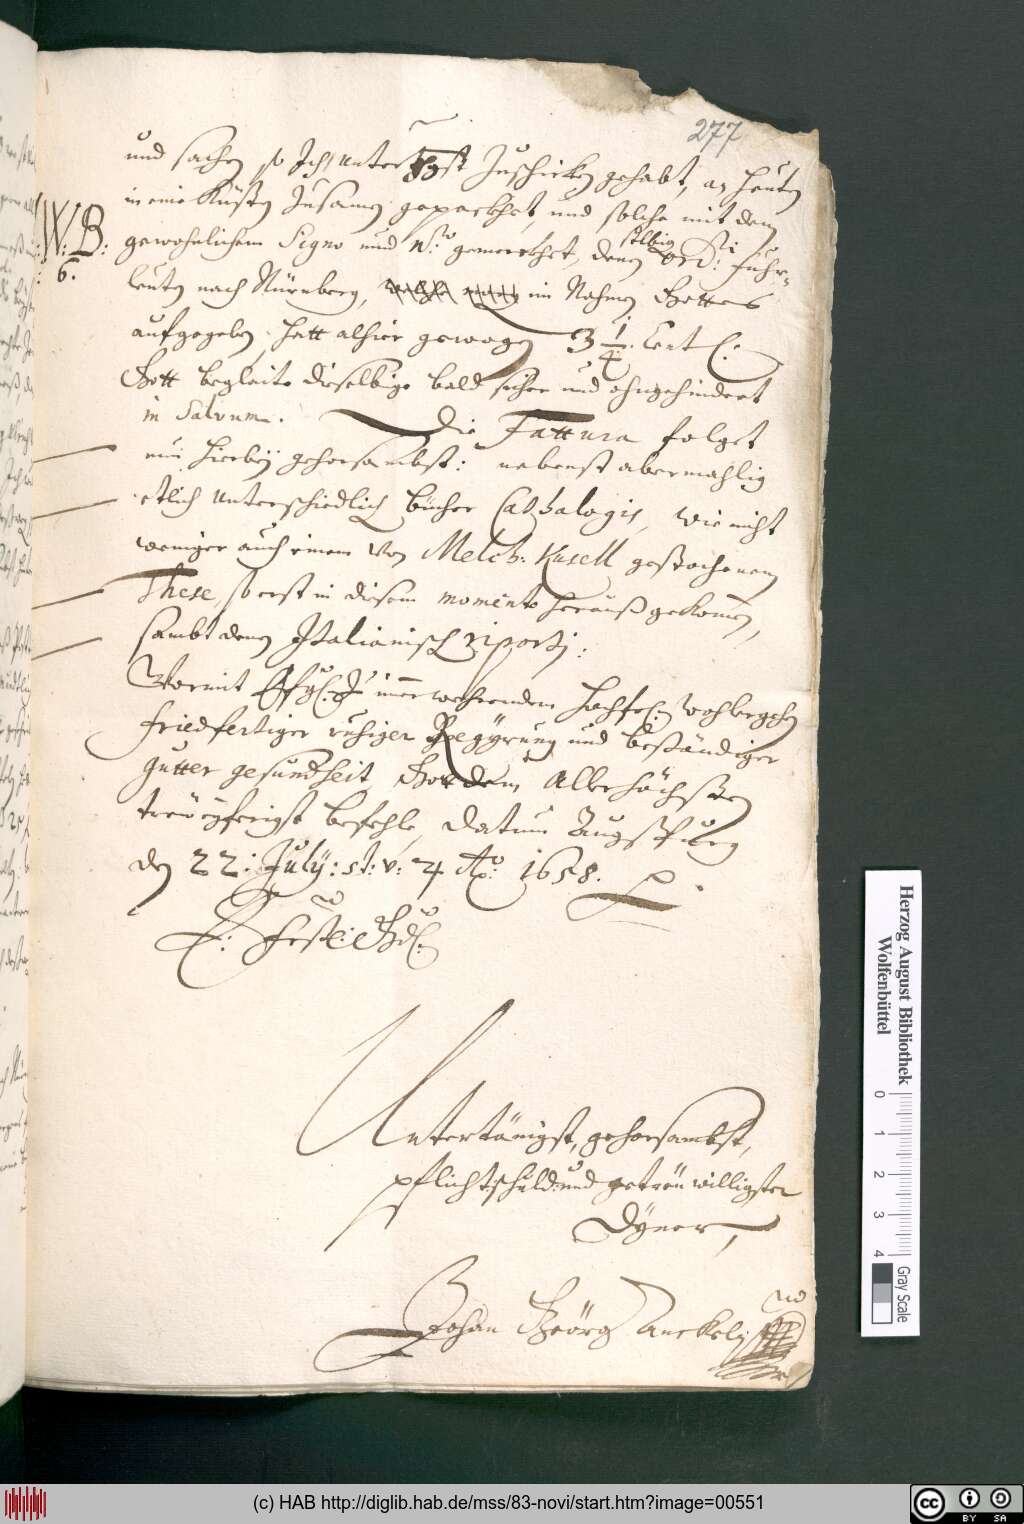 277
und sachen so Ich Zuschicken gehabt, an heuten
in eine Küsten Zusamen gepackhet, und solche mit dem
W: B:
6.
gewohnlichem Signo und N.ro gemerckhet, denen selbig ord.i: fuhr-
leuten nach Nürnberg, im Nahmen Gottes
aufgegeben, hatt alhier gewogen 3 1/4. Cent
Gott begleite dieselbige bald sicher und ohngehindert
in Salvum. Die Fattura folget
nun hierbey gehorsambst: nebenst abermahlig
etlich unterschiedlich bücher Cathalogis, wie nicht
weniger auch einem von Melch: Küsell gestochenem
These, so erst in diesem momento herauß gekommen,
sambt denen Italianisch riporti:
Wormit immerwehrendem wohlergehen
friedfertiger ruhiger Regyrung und beständiger
gutter gesundtheit Gott dem Allerhöchsten
treweyferigst befehle, Datum Augspurg
den 22: July: st: v: Ao: 1658.
E: Gd:
Untertänigst, gehorsambst,
pflichtschuld: und getreu willigster
Dyner,
Johan Geörg Anckel
Herzog August Bibliothek
Wolfenbüttel
0 1 2 3 4
Gray Scale
(c) HAB http://diglib.hab.de/mss/83-novi/start.htm?image=00551
cc BY SA